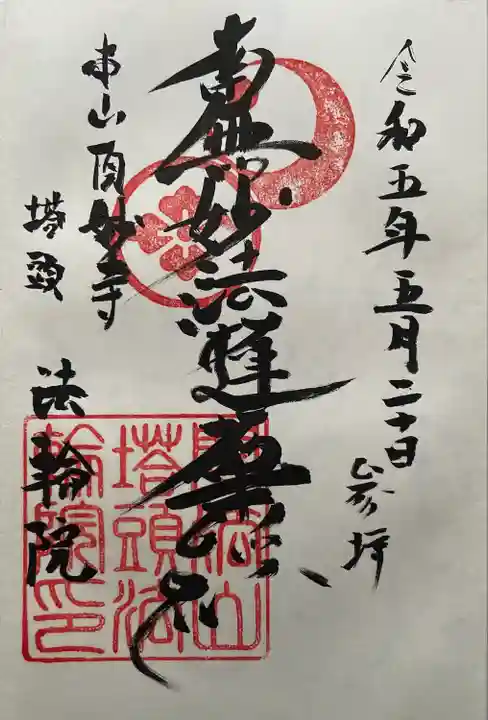 令和五年五月二十日
参拝
南無妙法蓮華経
本山頂妙寺
塔頭
法輪院
聞法山
塔頭法
輪院印